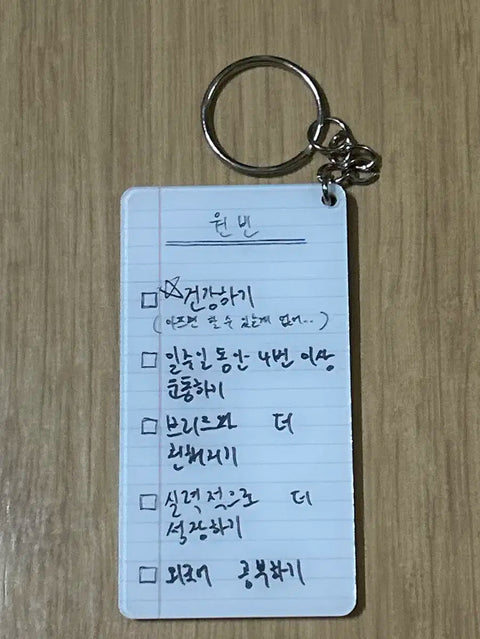 원빈
☐ ☆건강하기
(아프면 할 수 있는게 없어...)
☐ 일주일 동안 4번 이상
운동하기
☐ 브리즈와 더
친해지기
☐ 실력적으로 더
성장하기
☐ 외국어 공부하기